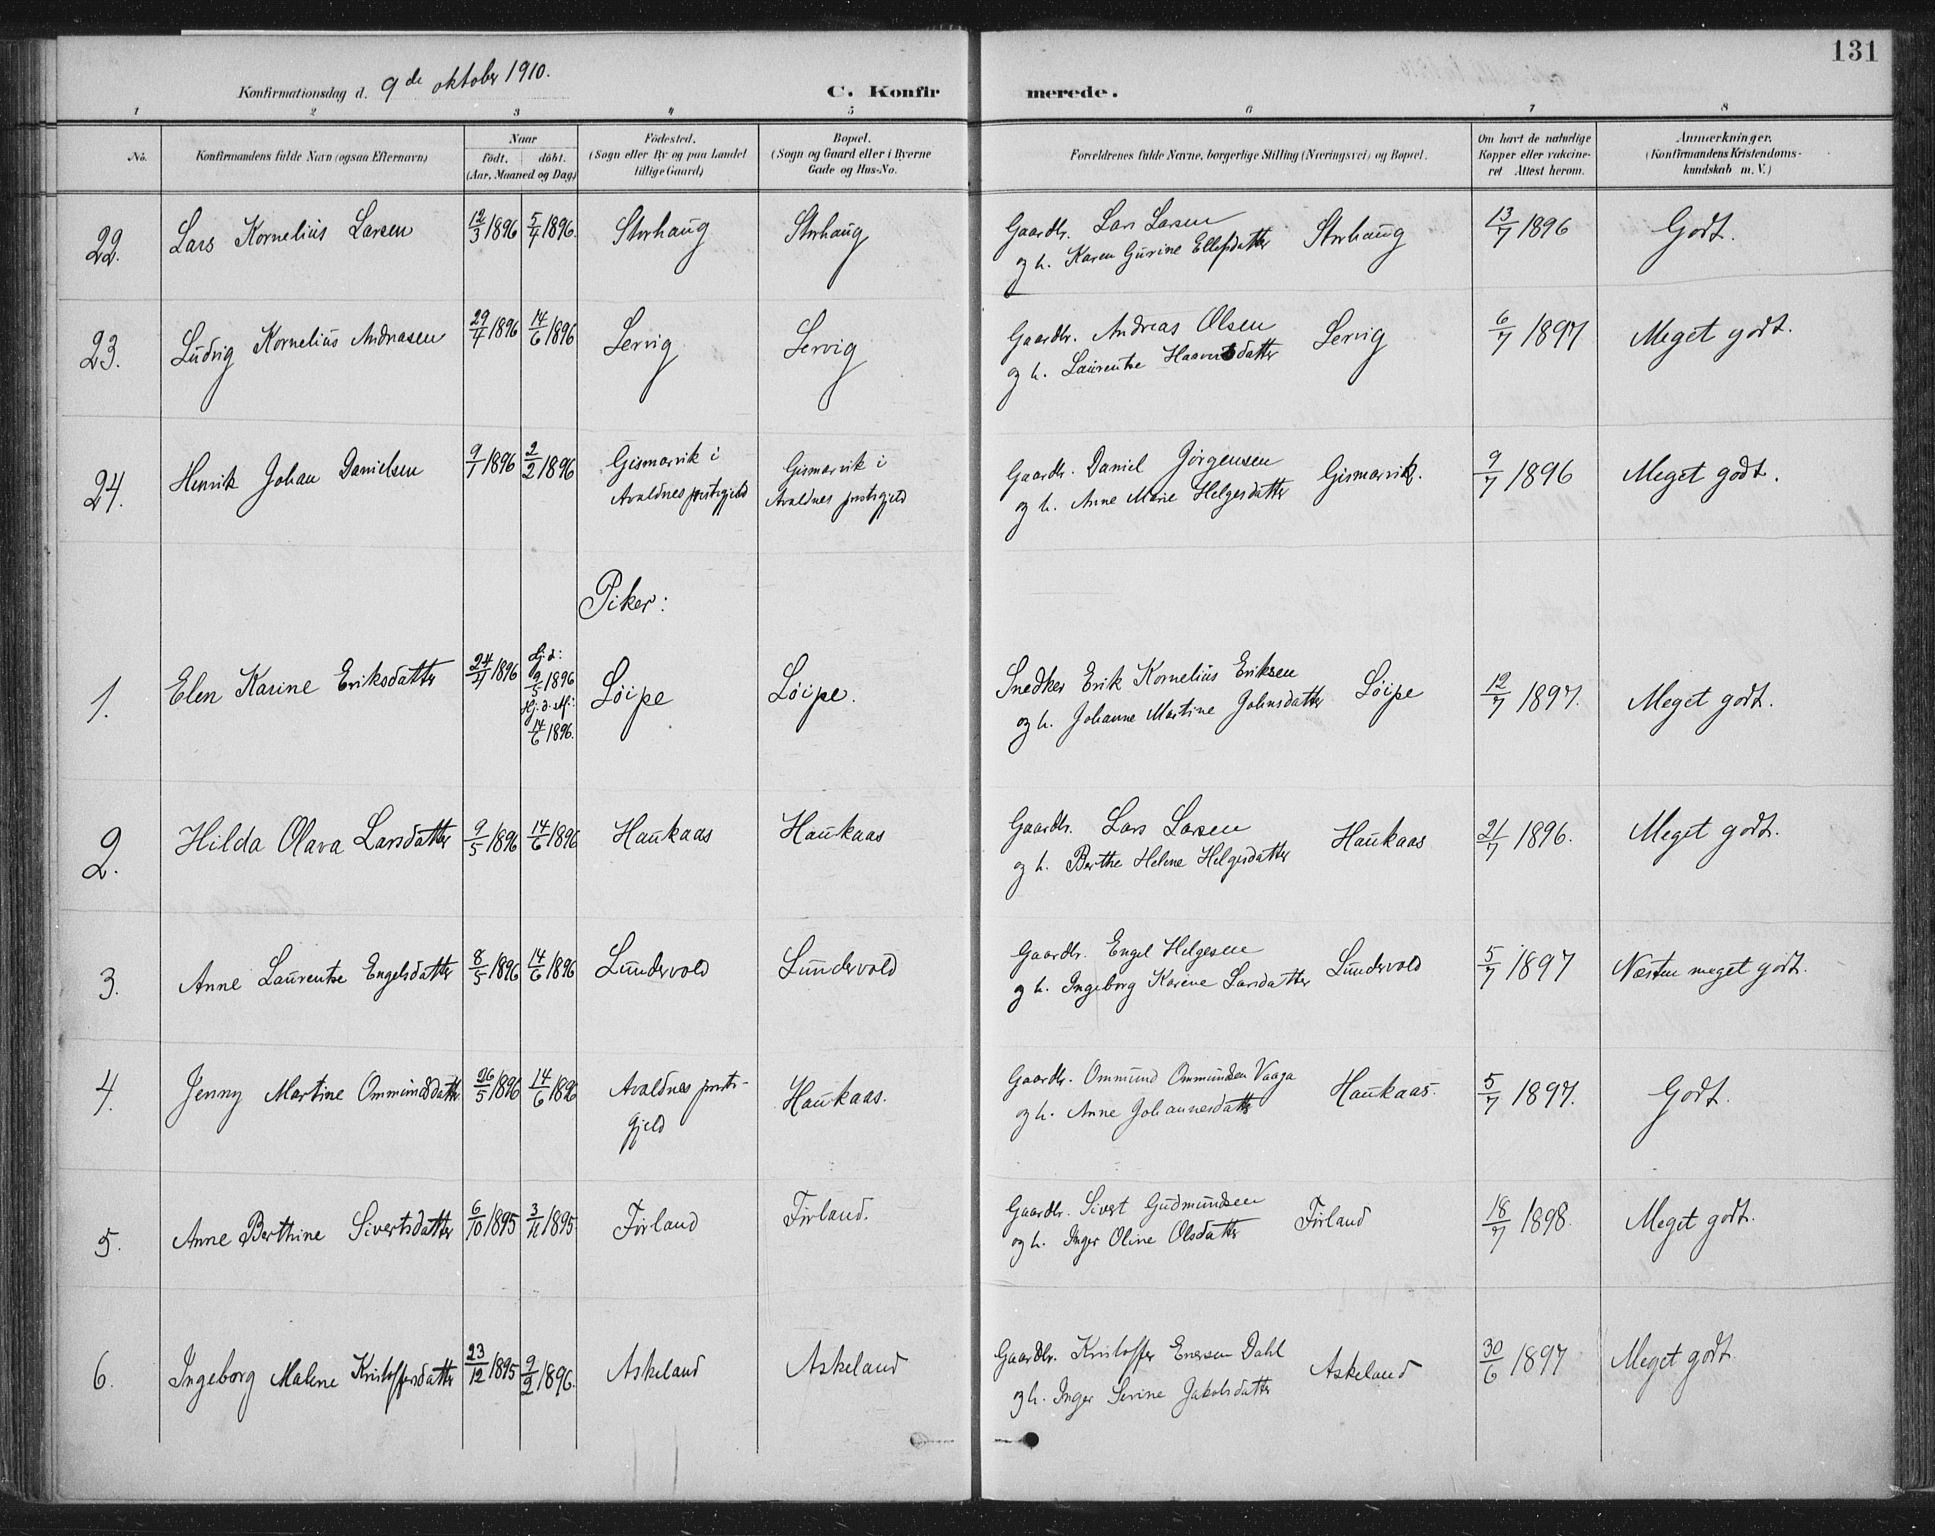 131
Konfirmationsdag d. 9de oktober 1910.
C. Konfirmerede.
1 2 3 4 5 6 7 8
No. Konfirmandens fulde Navn (ogsaa Efternavn) Naar födt. döbt. (Aar, Maaned og Dag) Födested. (Sogn eller By og paa Landet tillige Gaard) Bopæl. (Sogn og Gaard eller i Byerne Gade og Hus-No. Forældrenes fulde Navne, borgerlige Stilling (Næringsvei) og Bopæl. Om havt de naturlige Kopper eller vaccineret Attest herom. Anmærkninger. (Konfirmandens Kristendomskundskab m. V.)
22. Lars Kornelius Larsen 12/3 1896 5/4 1896. Storhaug Storhaug Gaardbr. Lars Larsen Storhaug 13/7 1896 Godt.
og h. Karen Gurine Ellefsdatter
23. Ludvig Kornelius Andreasen 29/4 1896 14/6 1896 Servig Servig Gaardbr. Andreas Olsen Servig 6/7 1897 Meget godt.
og h. Laurentse datter
24. Henrik Johan Danielsen 9/1 1896 2/2 1896 Gismarvik i Gismarvik i Gaardbr. Daniel Jørgensen Gismarvik. 9/7 1896 Meget godt.
Avaldnes prestegjeld Avaldnes prestegjeld og h. Anne Marie Helgesdatter
Piker:
1. Elen Karine Eriksdatter 24/4 1896 Hj. d: 9/5 1896 Løipe Løipe. Snedker Erik Kornelius Eriksen Løipe 12/7 1897. Meget godt.
Hj. d. st: 14/6 1896. og h. Johanne Martine Johnsdatter
2. Hilda Olava Larsdatter 9/5 1896 14/6 1896 Haukaas Haukaas Gaardbr. Lars Larsen Haukaas 21/7 1896. Meget godt.
og h. Berthe Helene Helgesdatter
3. Anne Laurentse Engelsdatter 8/5 1896 14/6 1896 Lundervold Lundervold Gaardbr. Engel Helgesen Lundervold 5/7 1897 Næsten meget godt.
og h. Ingeborg Karine Larsdatter
4. Jenny Martine Ommundsdatter 26/5 1896 14/6 1896 Avaldnes prestegjeld Haukaas. Gaardbr. Ommund Ommundsen Vaaga Haukaas. 5/7 1897. Godt.
og h. Anne Johannesdatter
5. Anne Berthine Sivertsdatter 6/10 1895 3/11 1895 Førland Førland. Gaardbr. Sivert Gudmundsen Førland 18/7 1898. Meget godt.
og h. Inger Oline Olsdatter
6. Ingeborg Malene Kristoffersdatter 23/12 1895 9/2 1896. Askeland Askeland Gaardbr. Kristoffer Enersen Dahl Askeland 30/6 1897 Meget godt.
og h. Inger Serine Jakobsdatter